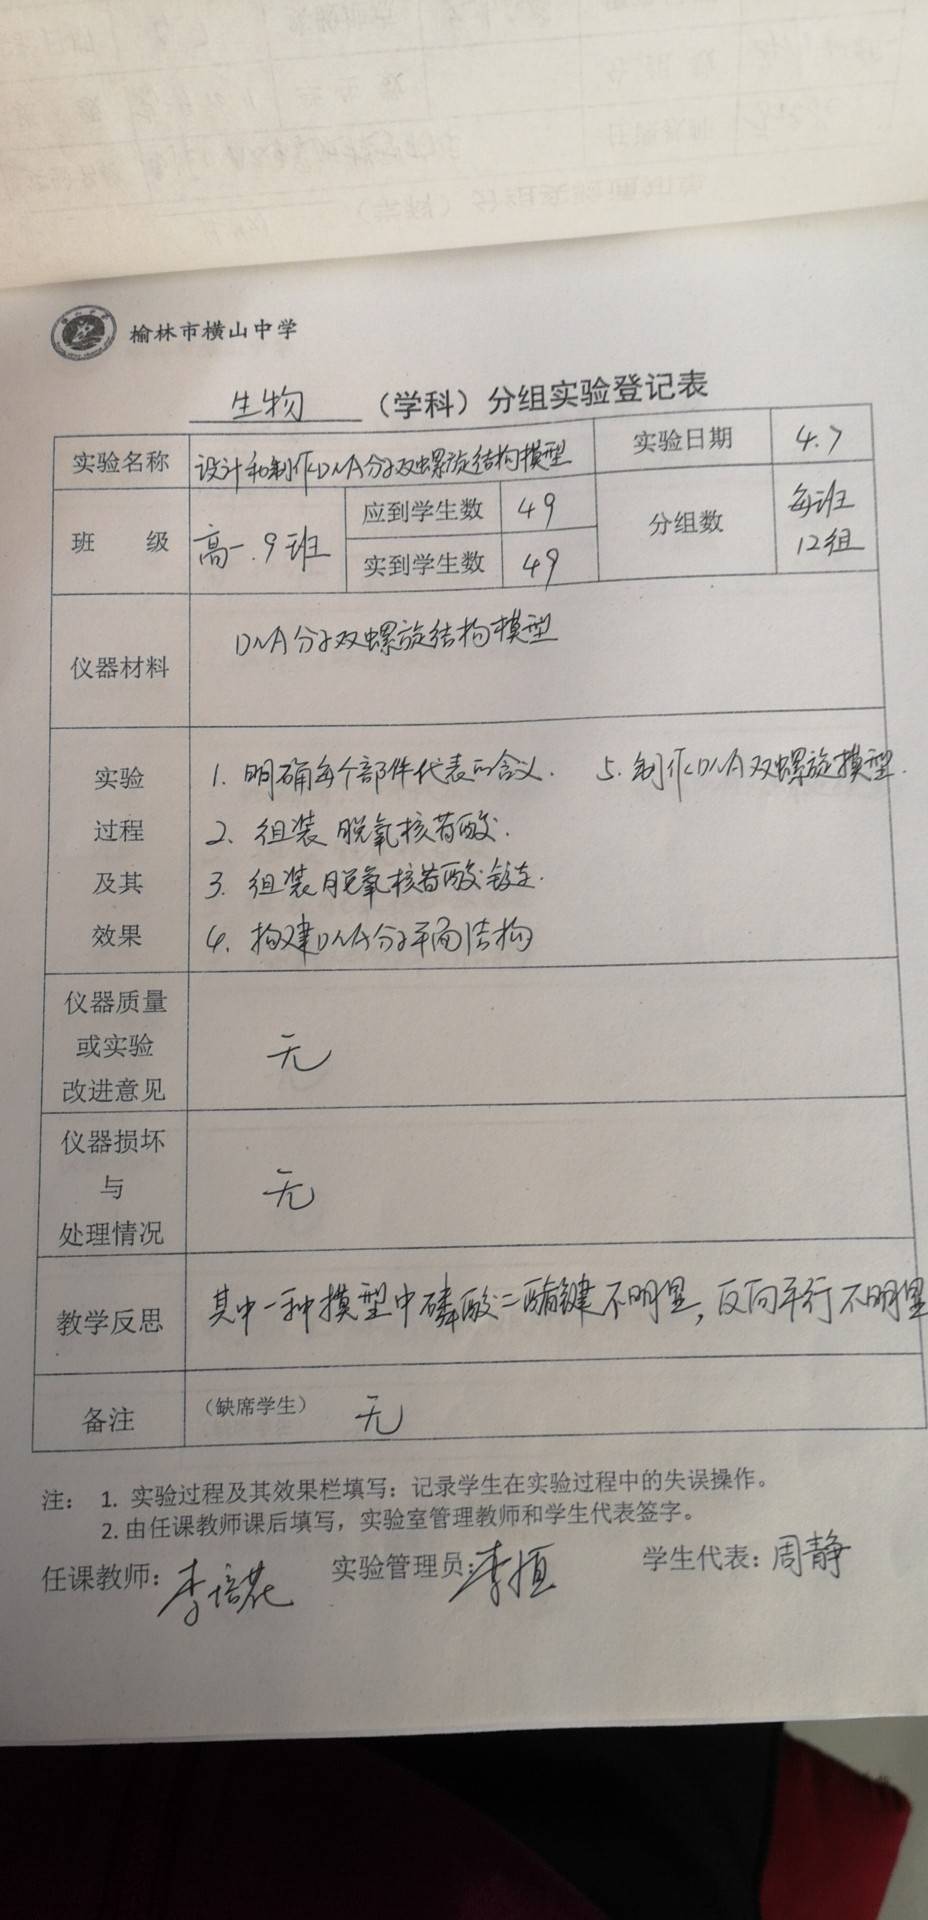 榆林市横山中学
生物（学科）分组实验登记表
实验名称 设计和制作DNA分子双螺旋结构模型 实验日期 4.7
班 级 高一.9班 应到学生数 49 分组数 每班12组
实到学生数 49
仪器材料 DNA分子双螺旋结构模型
实验过程及其效果
1. 明确每个部件代表的含义. 5. 制作DNA双螺旋模型.
2. 组装脱氧核苷酸.
3. 组装脱氧核苷酸链.
4. 构建DNA分子平面结构
仪器质量或实验改进意见 无
仪器损坏与处理情况 无
教学反思 其中一种模型中磷酸二酯键不明显，反向平行不明显
备注 （缺席学生） 无
注： 1. 实验过程及其效果栏填写：记录学生在实验过程中的失误操作。
2. 由任课教师课后填写，实验室管理教师和学生代表签字。
任课教师： 李培花 实验管理员： 学生代表：周静